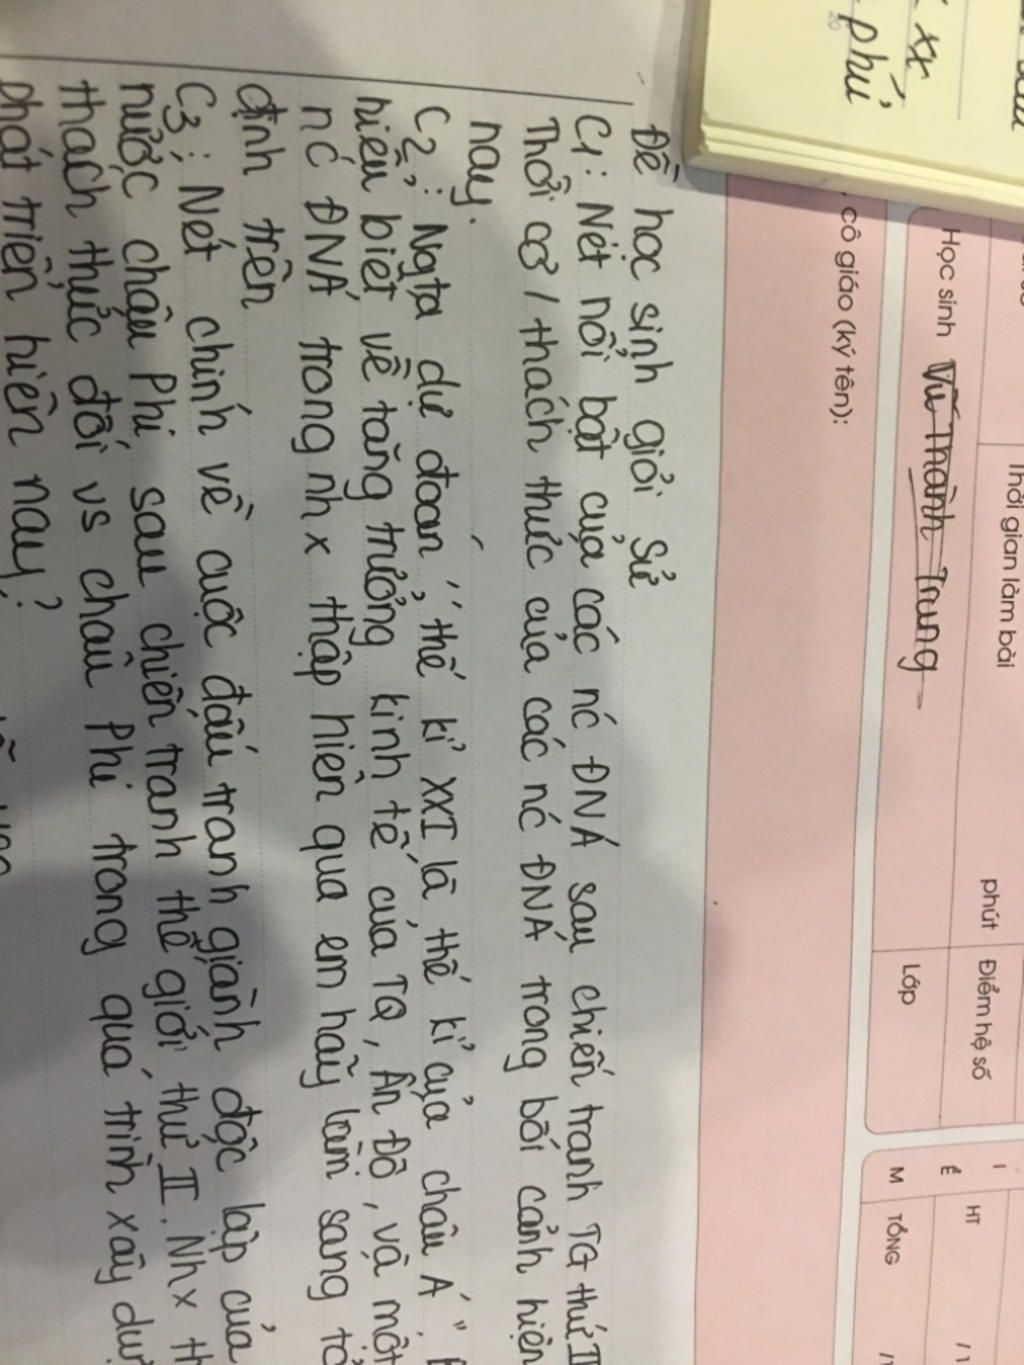 xx
phủ
Thời gian làm bài
phút
Điểm hệ số
HT
Học sinh Vũ Thành Trung
Lớp
M
TỔNG
cô giáo (ký tên):
Đề học sinh giỏi Sử
C1: Nét nổi bật của các nć ĐNÁ sau chiến tranh TG thứ II
Thời cơ / thách thức của các nć ĐNÁ trong bối cảnh hiện
nay.
C2: Ngta dự đoán "thế kỉ XXI là thế kỉ của châu Á".
hiểu biết về tăng trưởng kinh tế của TQ, Ấn Độ, và một
nć ĐNÁ trong nhx thập niên qua em hãy làm sáng tỏ
định trên
C3: Nét chính về cuộc đấu tranh giành độc lập của
nước châu Phi sau chiến tranh thế giới thứ II. Nhx
thách thực đối vs châu Phi trong quá trình xây
phát triển hiện nay?